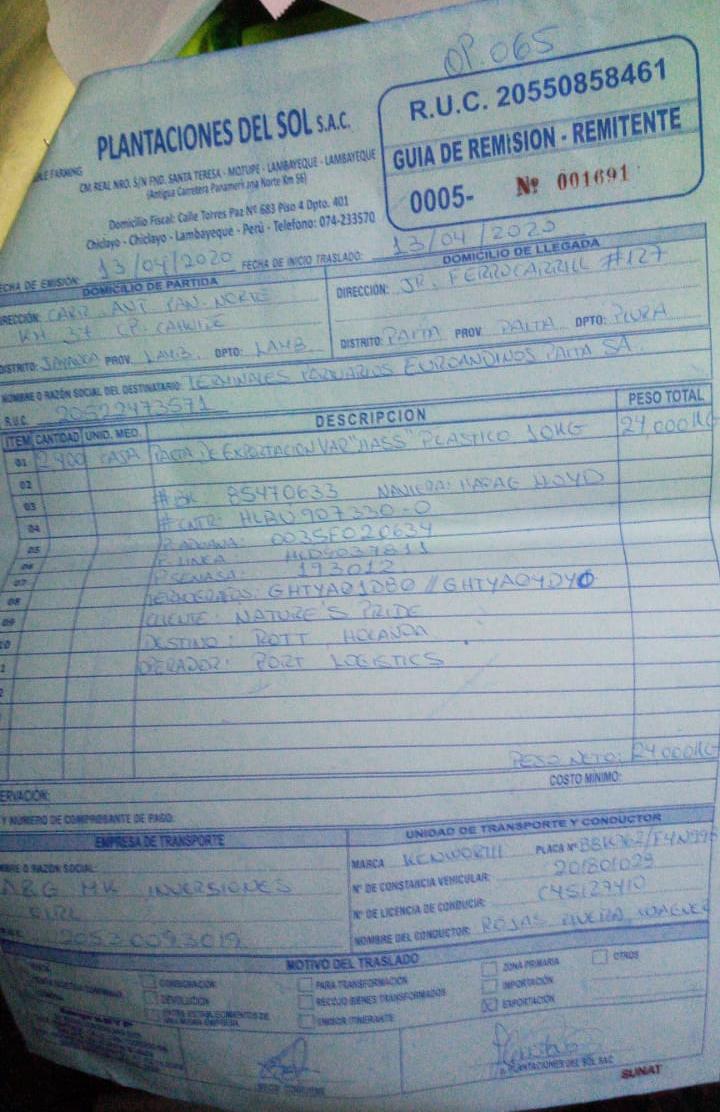 OP. 065
R.U.C. 20550858461
PLANTACIONES DEL SOL S.A.C.
GUIA DE REMISION - REMITENTE
FARMING
CM. REAL NRO. S/N FND. SANTA TERESA - MOTUPE - LAMBAYEQUE - LAMBAYEQUE
(Antigua Carretera Panamericana Norte Km 56)
0005- Nº 001691
Domicilio Fiscal: Calle Torres Paz Nº 683 Piso 4 Dpto. 401
Chiclayo - Chiclayo - Lambayeque - Perú - Telefono: 074-233570
FECHA DE EMISIÓN: 13/04/2020 FECHA DE INICIO TRASLADO: 13/04/2020
DOMICILIO DE PARTIDA
DOMICILIO DE LLEGADA
DIRECCIÓN: CARR. ANT. PAN. NORTE
KM 37 CP.
DIRECCIÓN: JR. FERROCARRILL #127
DISTRITO: JAYANCA PROV. LAMB. DPTO: LAMB.
DISTRITO: PAITA PROV. PAITA DPTO: PIURA
NOMBRE O RAZÓN SOCIAL DEL DESTINATARIO: TERMINALES PORTUARIOS EUROANDINOS PAITA SA.
R.U.C. 20522473571
ITEM CANTIDAD UNID. MED. DESCRIPCION PESO TOTAL
01 2400 CAJA PALTA DE EXPORTACION VAR "HASS" PLASTICO 10KG 24,000KG
02
03 # BK: 85470633 NAVIERA: HAPAG LLOYD
04 # CNTR: HLBU 907330-0
05 P. ADUANA: 003SF020634
06 P. LINEA: HLD5037811
07 P. SENASA: 193012
08 TERMOGRAFOS: GHTYAQ1DB0 // GHTYAQ4DY0
09 CLIENTE: NATURE'S PRIDE
10 DESTINO: ROTT, HOLANDA
OPERADOR: PORT LOGISTICS
PESO NETO: 24,000KG
COSTO MÍNIMO:
OBSERVACIÓN:
Y NUMERO DE COMPROBANTE DE PAGO:
EMPRESA DE TRANSPORTE
UNIDAD DE TRANSPORTE Y CONDUCTOR
NOMBRE O RAZÓN SOCIAL:
MARCA KENWORTH PLACA Nº
A&G MK INVERSIONES
EIRL
Nº DE CONSTANCIA VEHICULAR: 201801029
Nº DE LICENCIA DE CONDUCIR: C45127410
R.U.C. 20530093019
NOMBRE DEL CONDUCTOR: ROJAS RIVERA, WAGNER
MOTIVO DEL TRASLADO
VENTA
CONSIGNACIÓN
PARA TRANSFORMACIÓN
ZONA PRIMARIA
OTROS
DEVOLUCIÓN
RECOJO BIENES TRANSFORMADOS
IMPORTACIÓN
ENTRE ESTABLECIMIENTOS DE
UNA MISMA EMPRESA
EMISOR ITINERANTE
EXPORTACIÓN
p. PLANTACIONES DEL SOL SAC
SUNAT